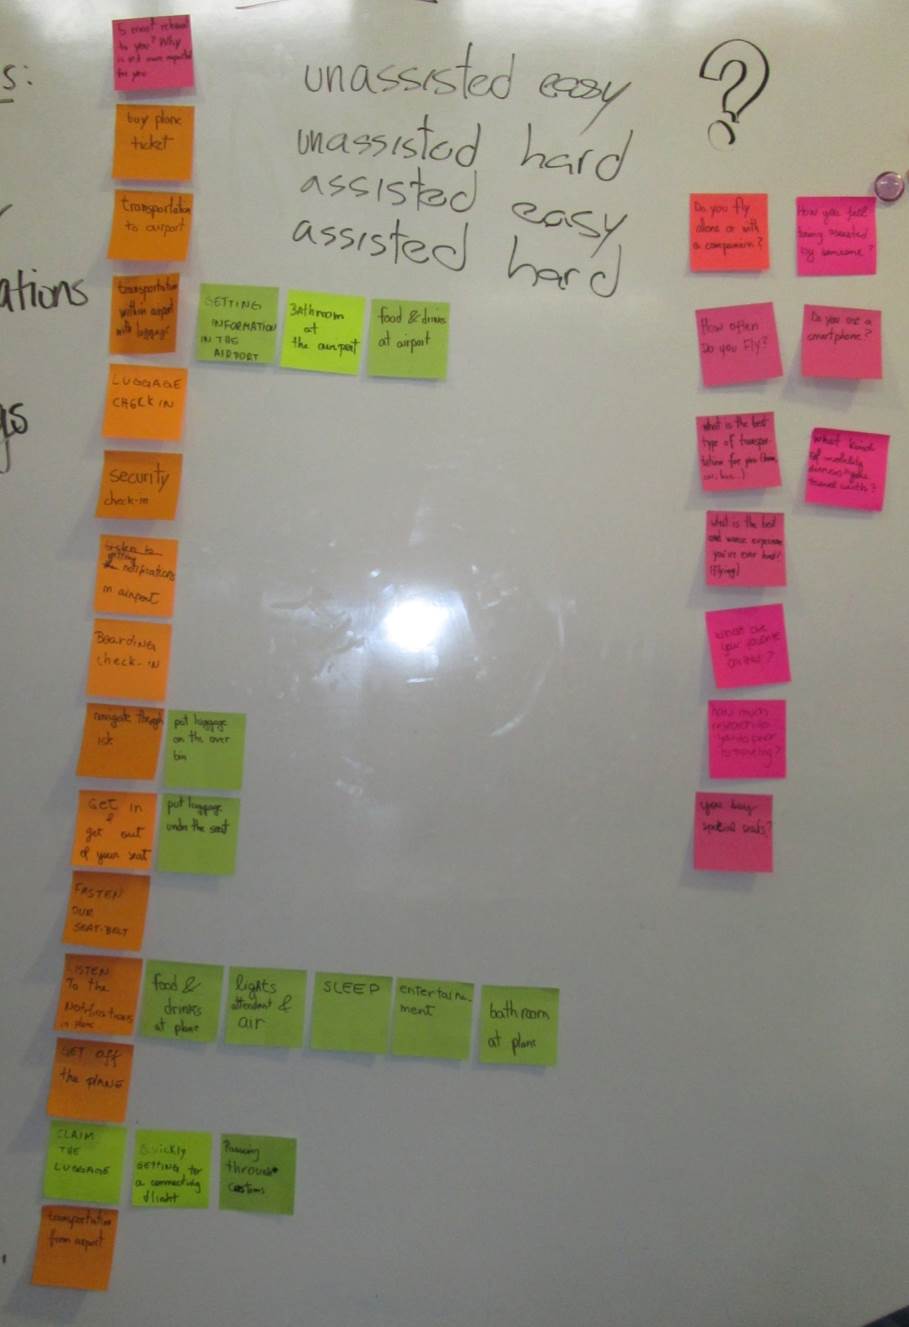 s:
ations
gs
5 most relevant
to you? Why
is it more important
for you
buy plane
ticket
transportation
to airport
transportation
within airport
with luggage
GETTING
INFORMATION
IN THE
AIRPORT
Bathroom
at
the airport
food & drinks
at airport
LUGGAGE
CHECK IN
security
check-in
getting
notifications
in airport
Boarding
check-in
navigate through
put luggage
on the over
bin
Get in
&
get out
of your seat
put luggage
under the seat
FASTEN
OUR
SEAT-BELT
LISTEN
To the
Notifications
in plane
food &
drinks
at plane
lights
attendant &
air
SLEEP
entertain-
ment
bathroom
at plane
GET off
the PLANE
CLAIM
THE
LUGGAGE
Quickly
GETTING for
a connecting
flight
Passing
through
customs
transportation
from airport
unassisted easy
unassisted hard
assisted easy
assisted hard
?
Do you fly
alone or with
a companion?
How you feel
being assisted
by someone?
How often
Do you Fly?
Do you use a
smartphone?
what is the best
type of transpor-
tation for you
What kind
of mobility
travel with?
what is the best
and worse experience
you've ever had?
(flying)
What are
your favorite
how much
research do
you do prior
to traveling?
you buy
special seats?